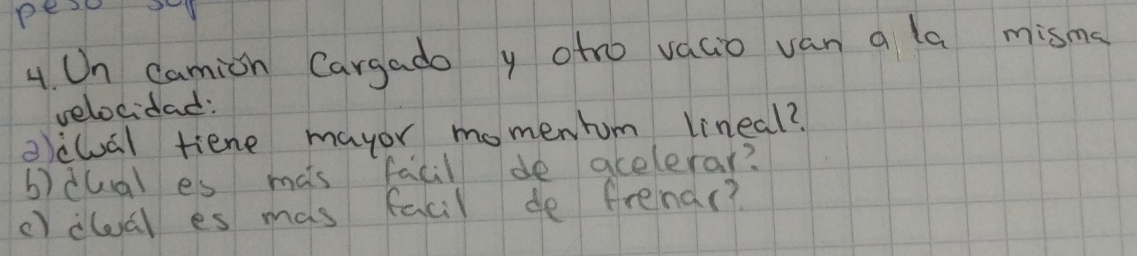 peso
4. Un camión Cargado y otro vacio van a la misma
velocidad:
a) ¿Cuál tiene mayor momentum lineal?
b) ¿Cual es más fácil de acelerar?
c) ¿Cuál es mas facil de frenar?